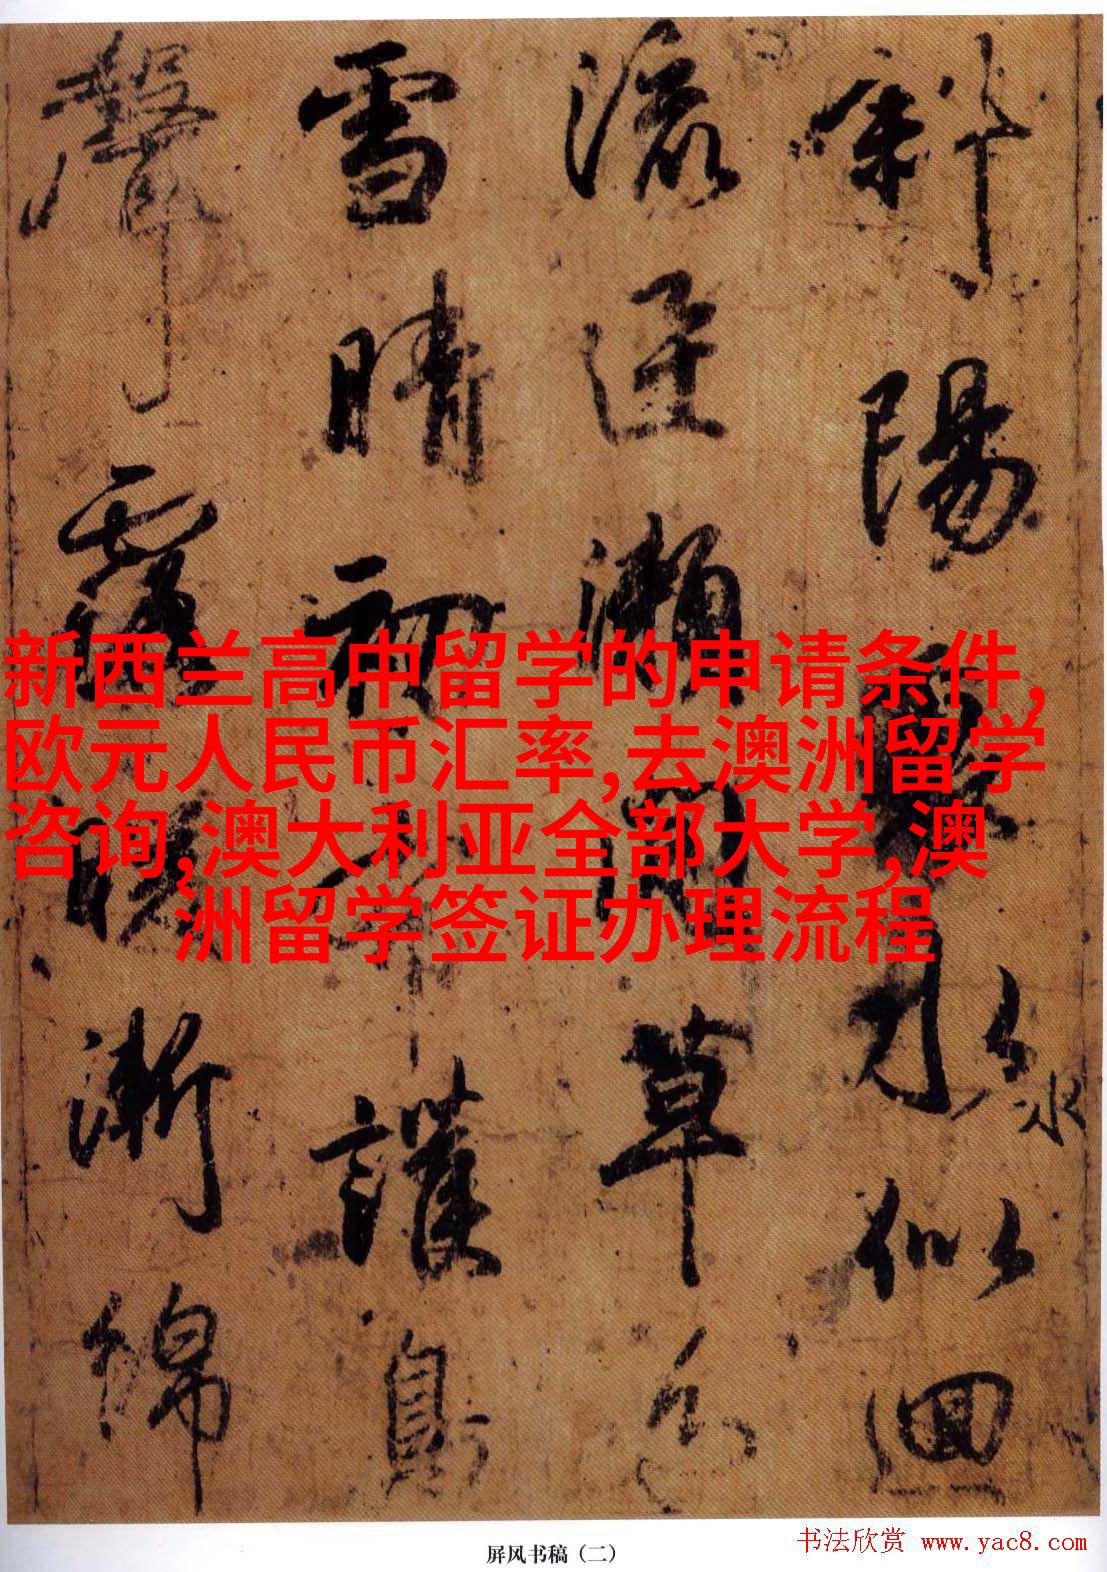 斜陽水似洄
迸瀬草色
雪晴初護鳥
聲漸綿
新西兰高中留学的申请条件,
欧元人民币汇率,去澳洲留学
咨询,澳大利亚全部大学,澳
洲留学签证办理流程
屏风书稿（二）
书法欣赏 www.yac8.com